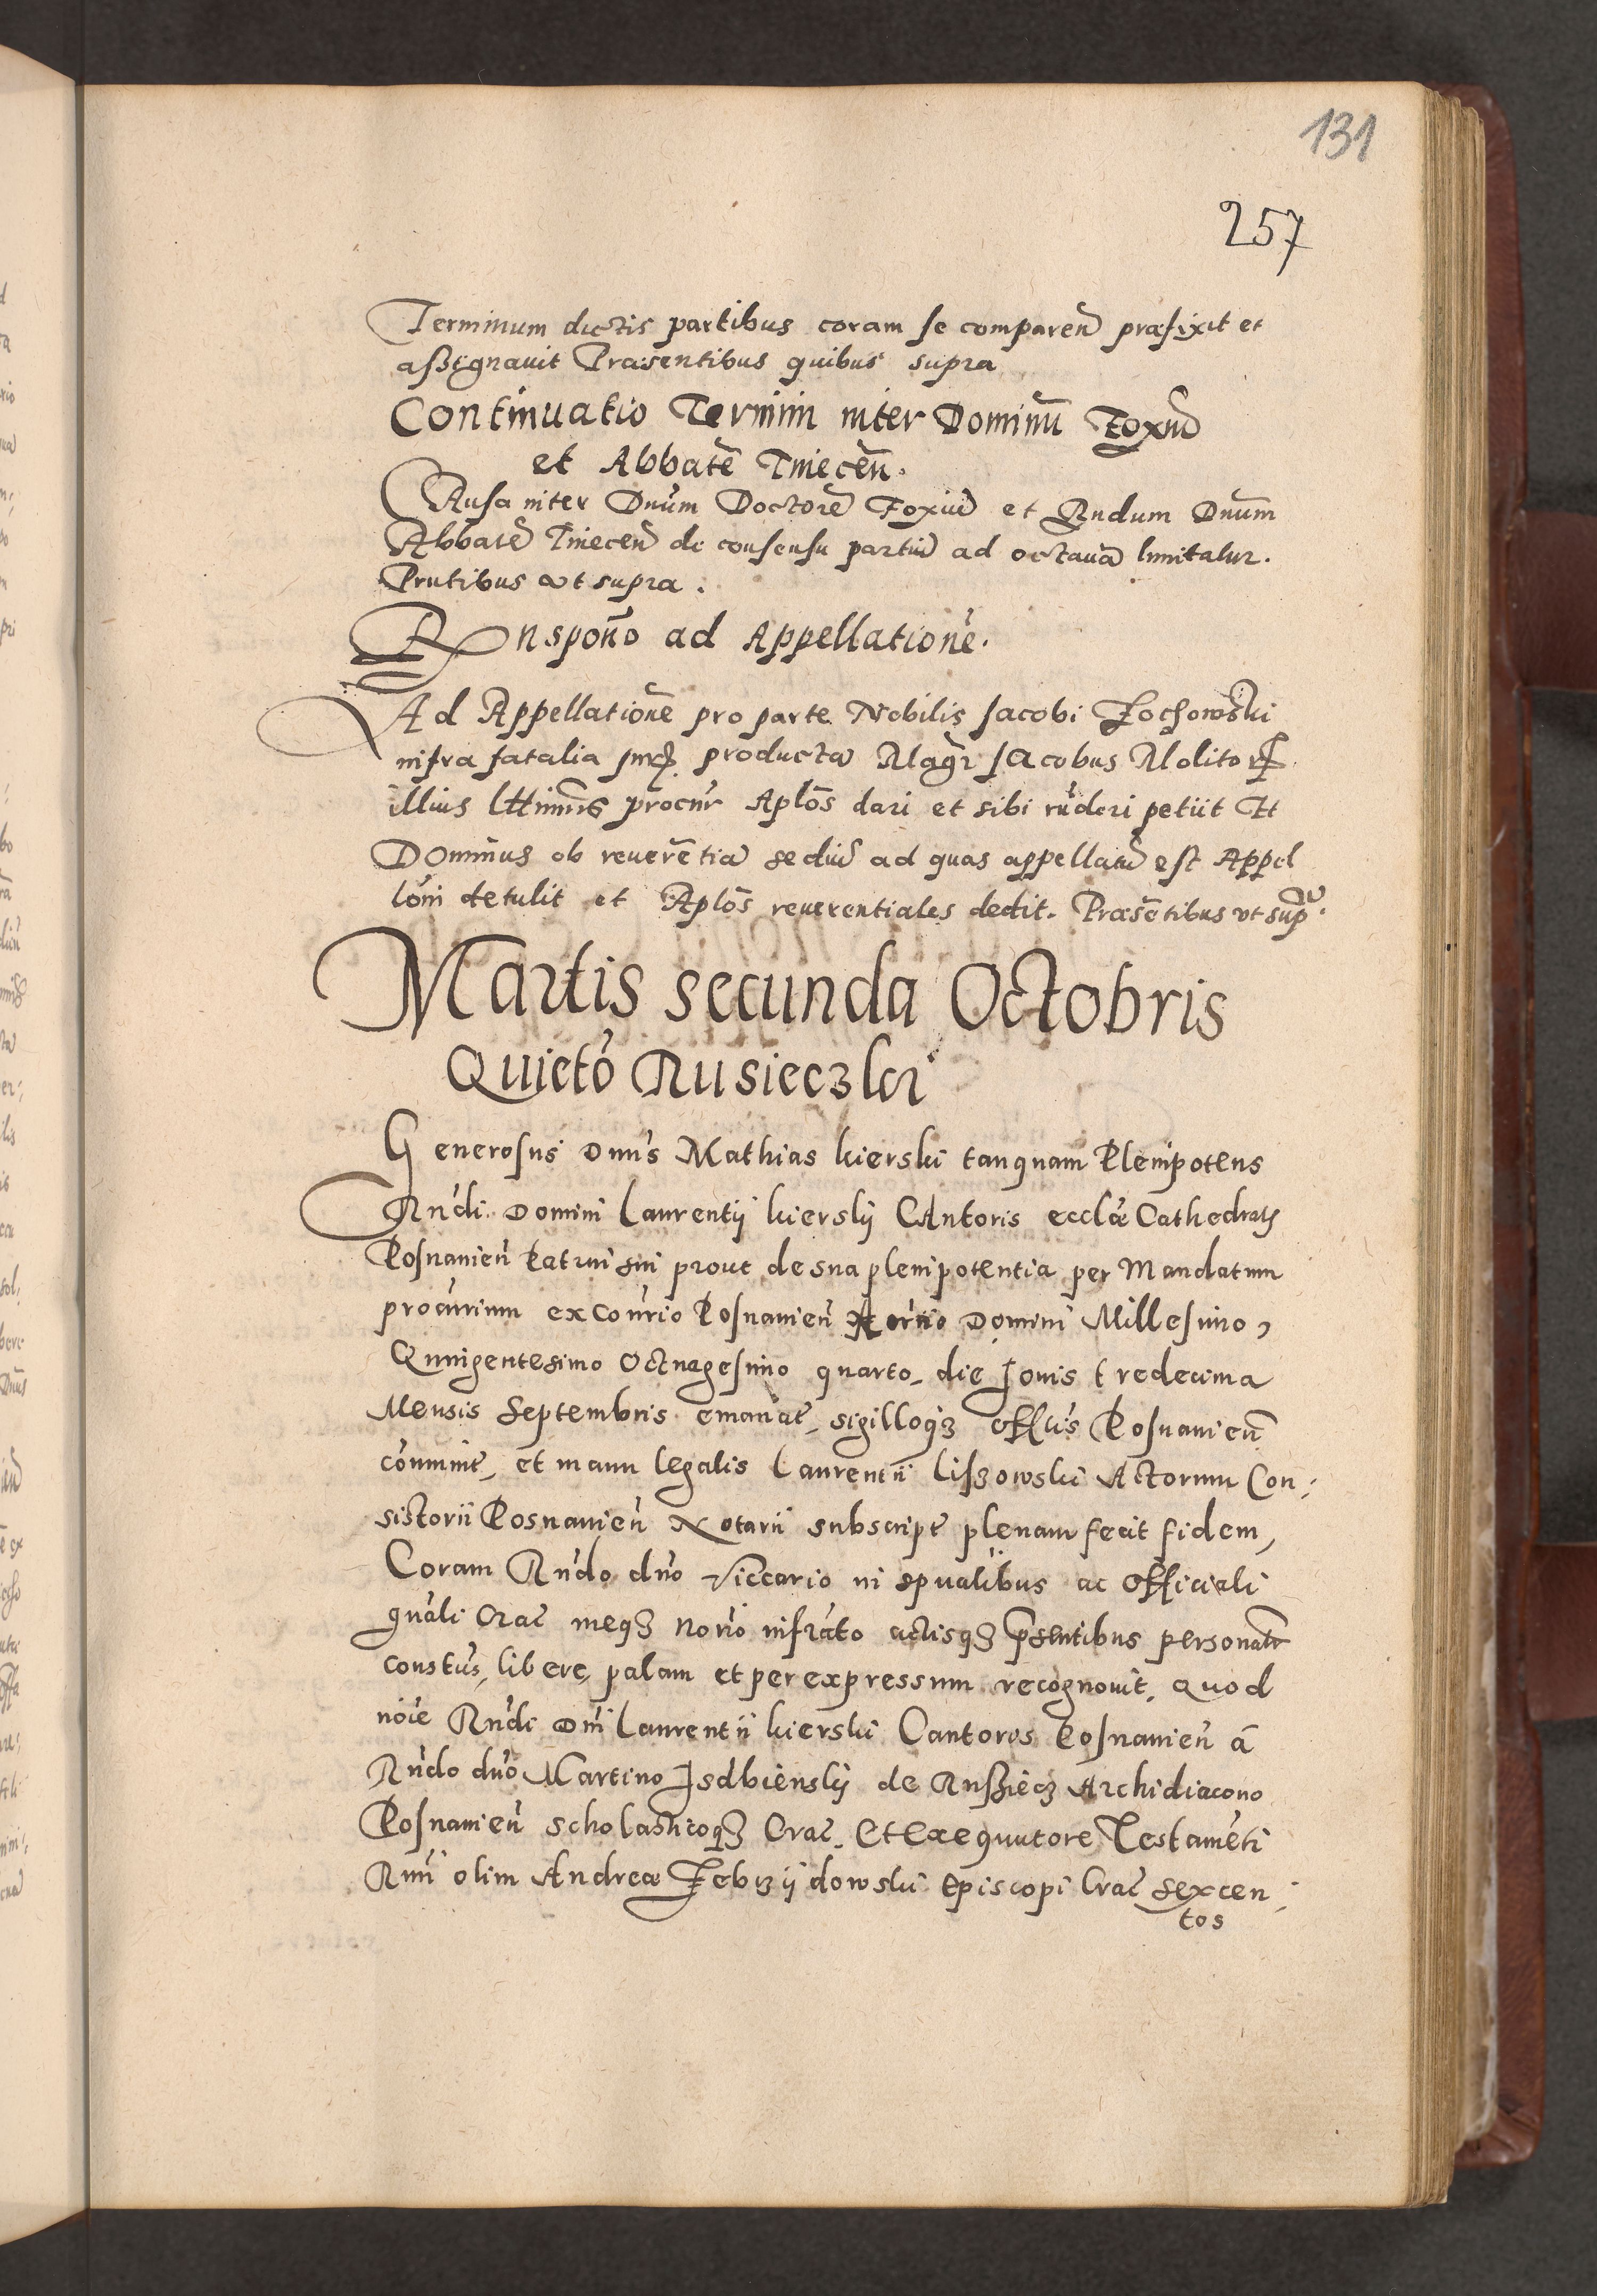 131
257
Terminum dictis partibus coram se comparen̄ præfixit et
assignauit Præsentibus quibus supra
Continuatio Termini inter Dominū Foxiū
et Abbatē Tinecen̄.
CAusa inter Dnūm Doctorē Foxiū et Rndum Dnūm
Abbatē Tinecen̄ de consensu partiū ad octauā limitatur.
Prntibus vt supra.
Rnsponō ad Appellationē.
Ad Appellationē pro parte Nobilis Jacobi Zochowski
infra fatalia producta Magr̄ Jacobus Molitor
illius lttīmus procūr Aplōs dari et sibi rn̄deri petiit Et
Dominus ob reuerētiā sediū ad quas appellatū est Appel
lōni detulit et Aplōs reuerentiales dedit. Præsētibus vt sup̄.
Martis secunda Octobris
Quietō Rusieczki
Generosus Dnūs Mathias kierski tanquam Plenipotens
Rn̄di Domini Laurentij kierskij CAntoris ecclæ Cathedralis
Posnanien̄ Patrui sui prout de sua plenipotentia per Mandatum
procūrium ex Cōnrio Posnanien̄ Domini Millesimo,
Quingentesimo Octuagesimo quarto, die Jouis tredecima
Mensis Septembris emanāt, sigilloq3 offlis Posnanien̄
cōmmīt, et manu legalis Laurentii Lissowski Actorum Con:
sistorii Posnanien̄ Notarii subscript plenam fecit fidem,
Coram Rn̄do dn̄o Viccario in spualibus ac Officiali
gnāli Crac̄ meq3 norīo infrāto actisq3 pn̄sentibus personalr̄
constūs, libere, palam et per expressum recognouit, quod
nōie Rn̄di Dn̄i Laurentii kierski Cantoris Posnanien̄ à
Rn̄do dn̄o Martino Isdbienskij de Russiecz Archidiacono
Posnanien̄ scholasticoq3 Crac̄, Et Exequutore Testamēti
Rmī olim Andreæ Zebrzijdowski Episcopi Crac̄ sexcen:
tos